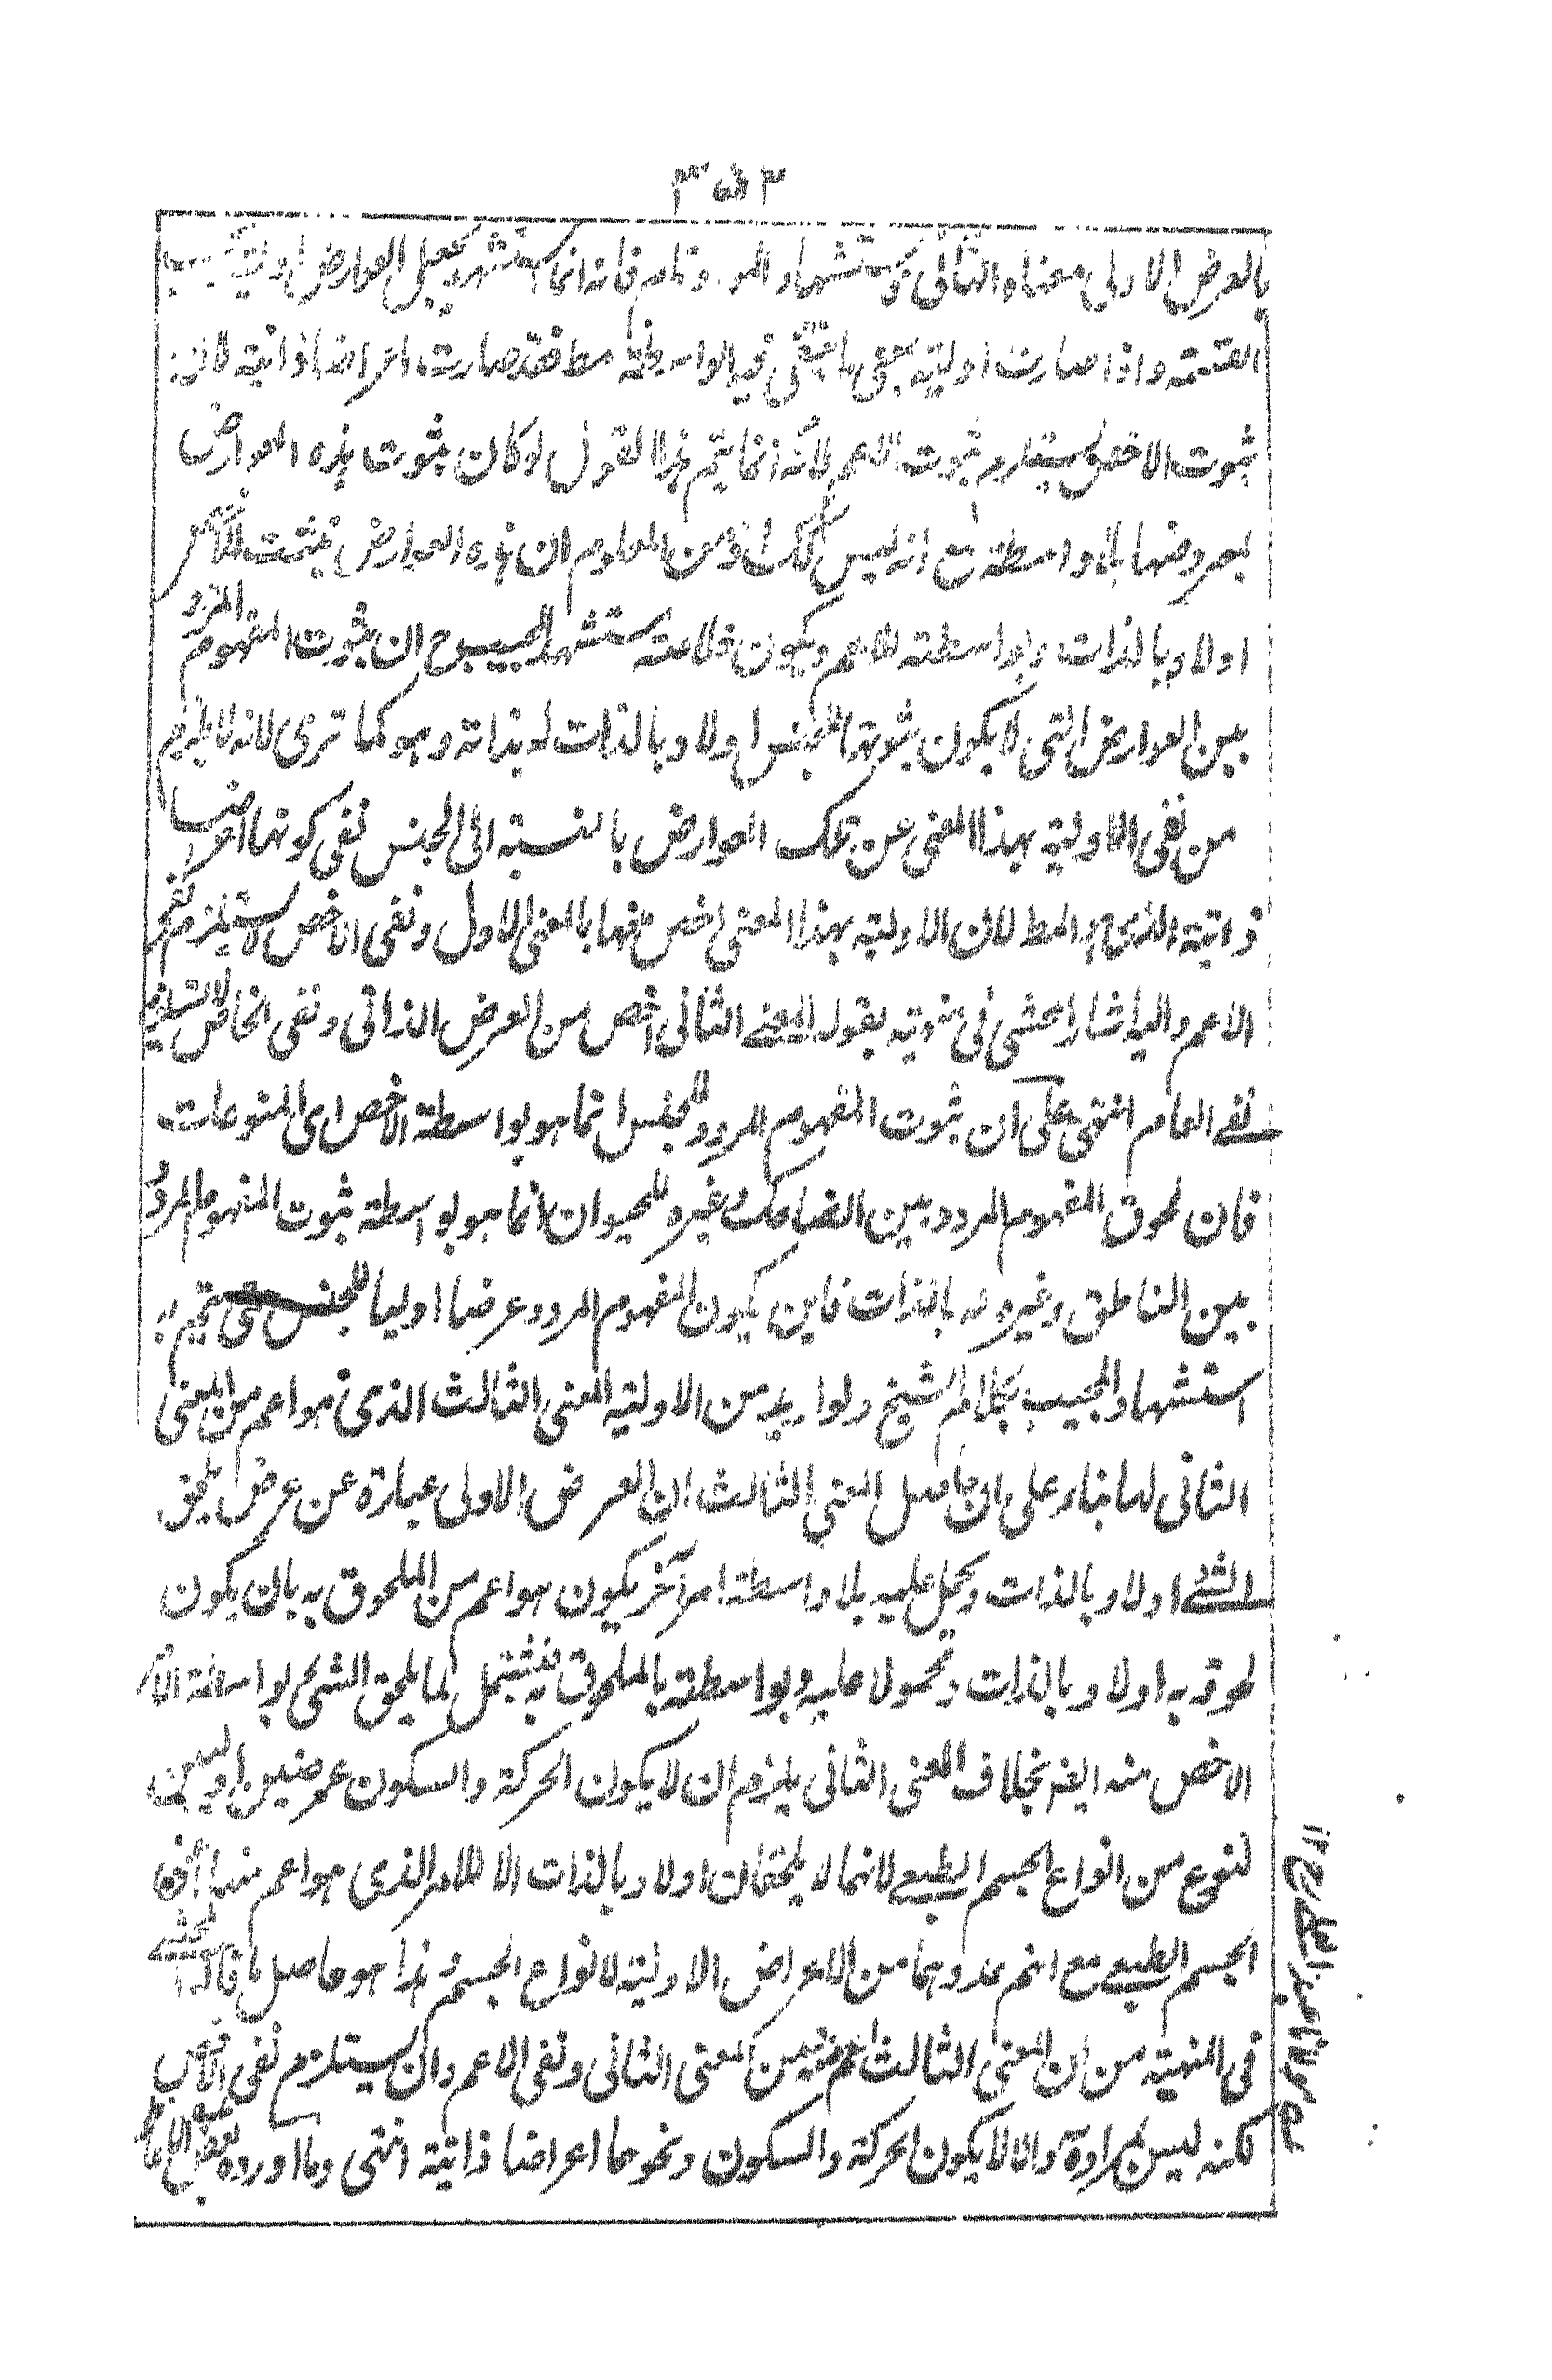 ٣٥٣
بالعرض الاولى معناه الثانى فاستشهاد وتامه فانه انما استشهد بجعل العوارض
القسمة واذا صارت اولية بمعنى ما ينتفى فيه الواسطة مط فقد صارت اعراضا ذاتية لان
ثبوت الاخص يستلزم ثبوت الاعم لانه انما يتم هذا القول لو كان ثبوت هذه العوارض
لمعروضها بلا واسطة مع انه ليس كذلك ومن المعلوم ان هذه العوارض يثبت للاخص
اولا وبالذات وبواسطته للاعم ويكون خلاصته استشهد المجيب ح ان ثبوت المفهوم المردد
بين العوارض التى لا يكون ثبوتها للجنس اولا وبالذات له بذاته وهو كما ترى لانه لا يلزم
من نفى الاولية بهذا المعنى عن تلك العوارض بالنسبة الى الجنس نفى كونها اعراضا
ذاتية الذى هو المط لان الاولية بهذا المعنى اخص منها بالمعنى الاول ونفى الاخص لا يستلزم نفى
الاعم واليه اشار المحشى فى منهيته بقوله المعنى الثانى اخص من العرض الذاتى ونفى الخاص لا يستلزم
نفى العام انتهى على ان ثبوت المفهوم المردد للجنس انما هو بواسطة الاخص اى المنوعات
فان لحوق المفهوم المردد بين الضاحك وغيره للحيوان انما هو بواسطة ثبوت المفهوم المردد
بين الناطق وغيره له بالذات فاين يكون المفهوم المردد عرضا اوليا للجنس حتى يتم به
استشهاد المجيب بكلام الشيخ ولو اريد من الاولية المعنى الثالث الذى هو اعم من المعنى
الثانى لها بناء على ان حاصل المعنى الثالث ان العرض الاولى عبارة عن عرض يلحق
الشئ اولا وبالذات ويحمل عليه بلا واسطة امر آخر يكون هو اعم من الملحوق به بان يكون
لحوقه به اولا وبالذات ومحمولا عليه وبواسطة بالملحوق به فيشتمل لما يلحق الشئ بواسطة الامر
الاخص منه ايضا بخلاف المعنى الثانى يلزم ان لا يكون الحركة والسكون عرضين اوليين
لنوع من انواع الجسم الطبعى لانهما لا يلحقان اولا وبالذات الا للامر الذى هو اعم منها اعنى
الجسم الطبعى مع انهم عدوهما من الاعراض الاولية لانواع الجسم وهذا هو حاصل ما قاله المحشى
فى المنهية من ان المعنى الثالث اعم من المعنى الثانى ونفى الاعم وان يستلزم نفى الاخص
لكنه ليس بمراد والا لا يكون الحركة والسكون ونحوهما اعراضا ذاتية انتهى وما اورده بعض الافاضل